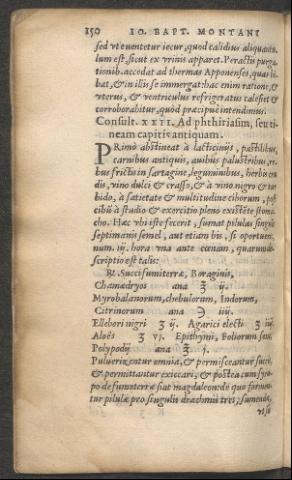 150 IO. BAPT. MONTANI
sed vt euentetur iecur, quod calidius aliquantu-
lum est, sicut ex vrinis apparet. Peractis purga-
tionib. accedat ad thermas Apponenses, quas bi-
bat, & in illis se immergat: hac enim ratione, &
vterus, & ventriculus refrigeratus calefiet &
corroborabitur, quod præcipuè intendimus.
Consult. XXII. Ad phthiriasim, seu ti-
neam capitis antiquam.
PRimò abstineat à lacticinijs, pastillibus,
carnibus antiquis, auibus palustribus, re-
bus frictis in sartagine, leguminibus, herbis cru
dis, vino dulci & crasso, & à vino nigro & tur
bido, à satietate & multitudine ciborum, post
cibũ à studio & exercitio pleno existẽte stoma
cho. Hæc vbi iste fecerit, sumat pilulas singulis
septimanis semel, aut etiam bis, si oportuerit,
num. iij. hora vna ante cœnam, quarum de-
scriptio est talis:
℞. Succi fumiterræ, Boraginis,
Chamædryos ana ʒ ij.
Myrobalanorum, chebulorum, Indorum,
Citrinorum ana ℈ iiij.
Ellebori nigri ʒ ij. Agarici electi ʒ iij.
Aloës ʒ vj. Epithymi, Foliorum sen.
Polypodij ana ʒ j.
Puluerizentur omnia, & permisceantur succi,
& permittantur exiccari, & postea cum syru-
po de fumoterræ fiat magdaleon: de quo formen-
tur pilulæ pro singulis drachmis tres, sumendæ,